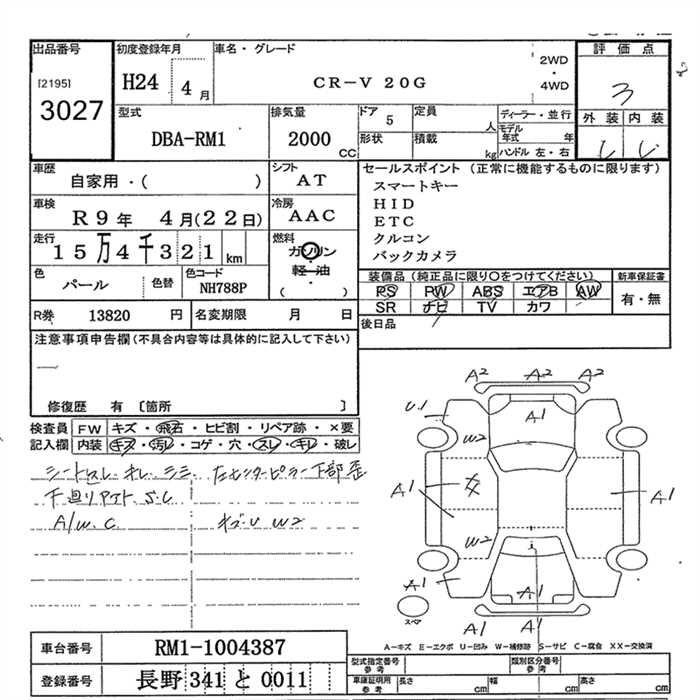 出品番号
初度登録年月
車名・グレード
評価点
[2195]
3027
H24 4月
CR-V 20G
2WD
・
4WD
3
外装 内装
型式
DBA-RM1
排気量
2000 CC
ドア 5
定員 人
ディーラー・並行
モデル年式 年
形状
積載 kg
ハンドル 左・右
車歴
自家用・( )
シフト
AT
セールスポイント (正常に機能するものに限ります)
スマートキー
HID
ETC
クルコン
バックカメラ
車検
R9年 4月(22日)
冷房
AAC
走行
15万4千321km
燃料
ガソリン
軽・油
・
( )
色
パール
色替
色コード
NH788P
装備品 (純正品に限り○をつけてください)
新車保証書
PS PW ABS エアB AW
有・無
SR ナビ TV カワ
R券 13820 円
名変期限 月 日
後日品
注意事項申告欄 (不具合内容等は具体的に記入して下さい)
修復歴 有 〔箇所 〕
検査員 FW キズ・飛石・ヒビ割・リペア跡・×要
記入欄 内装 キズ・汚レ・コゲ・穴・スレ・キレ・破レ
シートスレ
左センターピラー下部歪
A/W C
W2
A2 A2 A2
A1
U1
W2
A1
A1
W2
A1
A1
A1 A1
スペア
A-キズ E-エクボ U-凹み W-補修跡 S-サビ C-腐食 XX-交換済
車台番号
RM1-1004387
型式指定番号
参考
類別区分番号
参考
登録番号
長野 341 と 0011
車庫証明用
参考
長さ cm
幅 cm
高さ cm